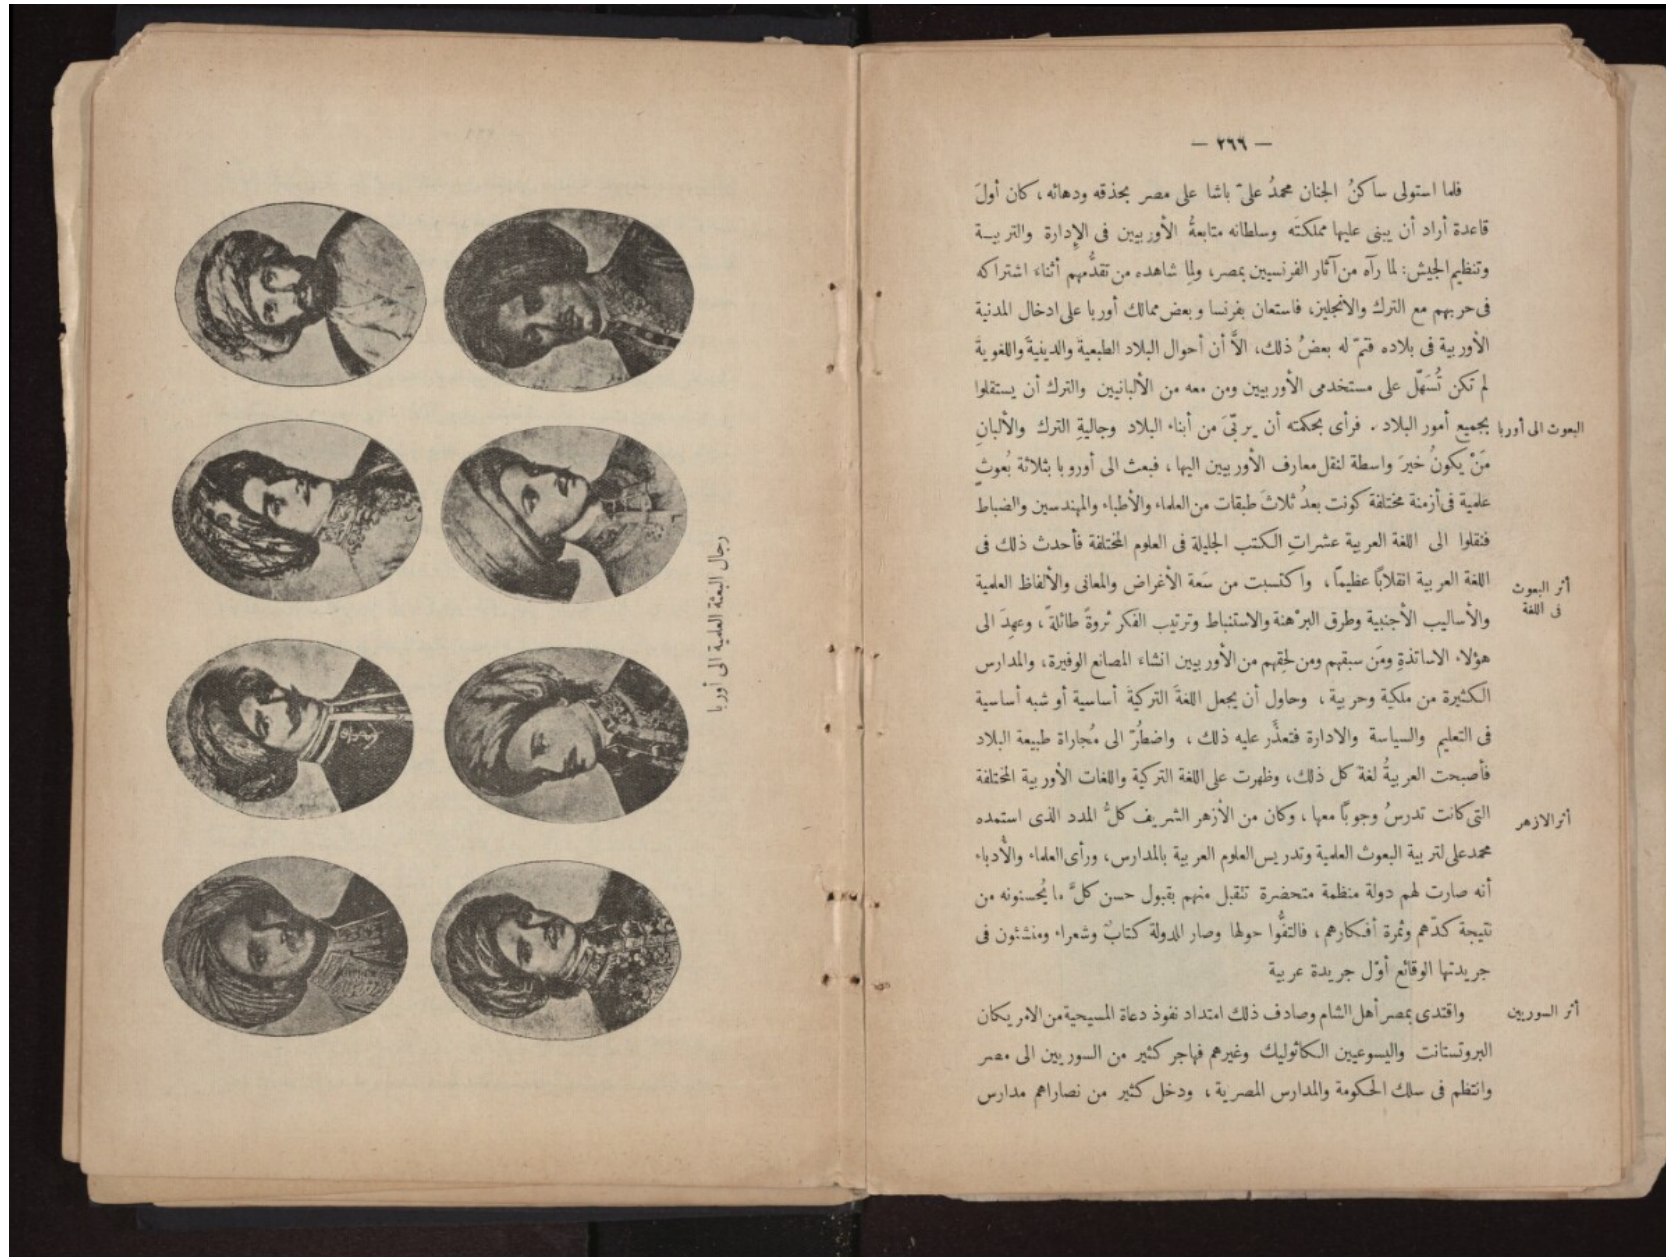 — ٢٦٦ —
فلما استولى ساكنُ الجنان محمدُ علىّ باشا على مصر بحذقه ودهائه، كان أولَ
قاعدة أراد أن يبنى عليها مملكتَه وسلطانه متابعةُ الأوربيين فى الإدارة والتربيــة
وتنظيم الجيش: لما رآه من آثار الفرنسيين بمصر، ولِما شاهده من تقدُّمهم أثناء اشتراكه
فى حربهم مع الترك والانجليز، فاستعان بفرنسا وبعض ممالك أوربا على ادخال المدنية
الأوربية فى بلاده فتمّ له بعضُ ذلك، الاَّ أن أحوال البلاد الطبعية والدينيةَ واللغويةَ
لم تكن تُسَهّل على مستخدمى الأوربيين ومن معه من الألبانيين والترك أن يستقلوا
البعوث الى أوربا
بجميع أمور البلاد. فرأى بحكمته أن يربّىَ من أبناء البلاد وجاليةِ الترك والألبانِ
مَنْ يكونُ خيرَ واسطة لنقل معارف الأوربيين اليها، فبعث الى أوروبا بثلاثة بُعوثٍ
علمية فى أزمنة مختلفة كونت بعدُ ثلاثَ طبقات من العلماء والأطباء والمهندسين والضباط
فنقلوا الى اللغة العربية عشراتِ الكتب الجليلة فى العلوم المختلفة فأحدث ذلك فى
أثر البعوث
فى اللغة
اللغة العربية انقلابًا عظيمًا، واكتسبت من سَعة الأغراض والمعانى والألفاظ العلمية
والأساليب الأجنبية وطرق البرْهنة والاستنباط وترتيب الفكر ثروةً طائلةً، وعهِدَ الى
هؤلاء الاساتذةِ ومَن سبقهم ومن لحِقهم من الأوربيين انشاء المصانع الوفيرة، والمدارس
الكثيرة من ملكية وحربية، وحاول أن يجعل اللغةَ التركيةَ أساسية أو شبه أساسية
فى التعليم والسياسة والادارة فتعذَّر عليه ذلك، واضطُرّ الى مُجاراة طبيعة البلاد
فأصبحت العربيةُ لغةَ كل ذلك، وظهرت على اللغة التركية واللغات الأوربية المختلفة
أثر الازهر
التى كانت تدرسُ وجوبًا معها، وكان من الأزهر الشريف كلُّ المدد الذى استمده
محمد على لتربية البعوث العلمية وتدريس العلوم العربية بالمدارس، ورأى العلماء والأدباء
أنه صارت لهم دولة منظمة متحضرة تتقبل منهم بقبول حسن كلَّ ما يُحسنونه من
نتيجة كدّهم وثمرة أفكارهم، فالتفُّوا حولها وصار للدولة كتابٌ وشعراء ومنشئون فى
جريدتها الوقائع أوّل جريدة عربية
أثر السوريين
واقتدى بمصر أهل الشام وصادف ذلك امتداد نفوذ دعاة المسيحية من الامريكان
البروتستانت واليسوعيين الكاثوليك وغيرهم فهاجر كثير من السوريين الى مصر
وانتظم فى سلك الحكومة والمدارس المصرية، ودخل كثير من نصاراهم مدارس
رجال البعثة العلمية الى أوربا